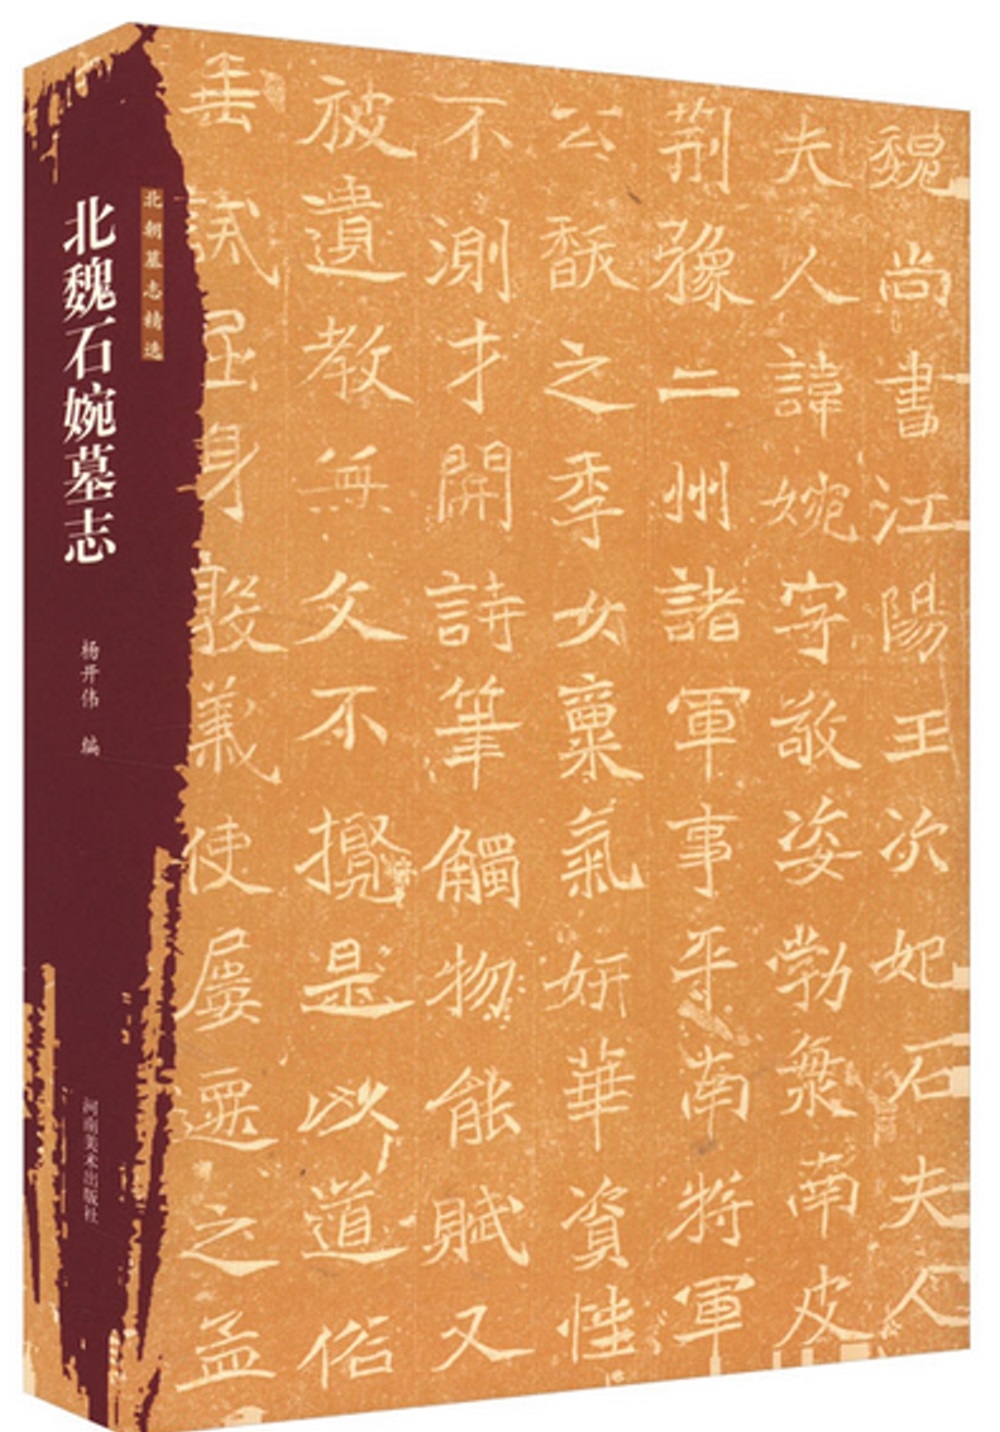 北朝墓志精选
北魏石婉墓志
杨开伟 编
河南美术出版社
魏尚書江陽王次妃石夫人
夫人諱婉字敬姿勃海南皮
荆豫二州諸軍事平南將軍
公馛之季女稟氣妍華資性
不測才開詩筆觸物能賦又
被遺教無文不攬是以道俗
垂試屈身義使屢遷之孟